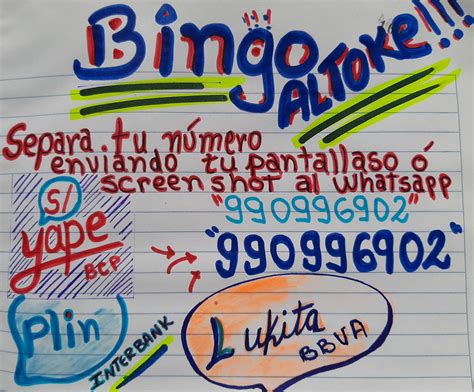 Bingo!!!
ALTOKE!!!
Separa tu número
enviando tu pantallaso ó
screen shot al Whatsapp
"990996902"
"990996902"
S/
yape
BCP
Plin
INTERBANK
Lukita
BBVA